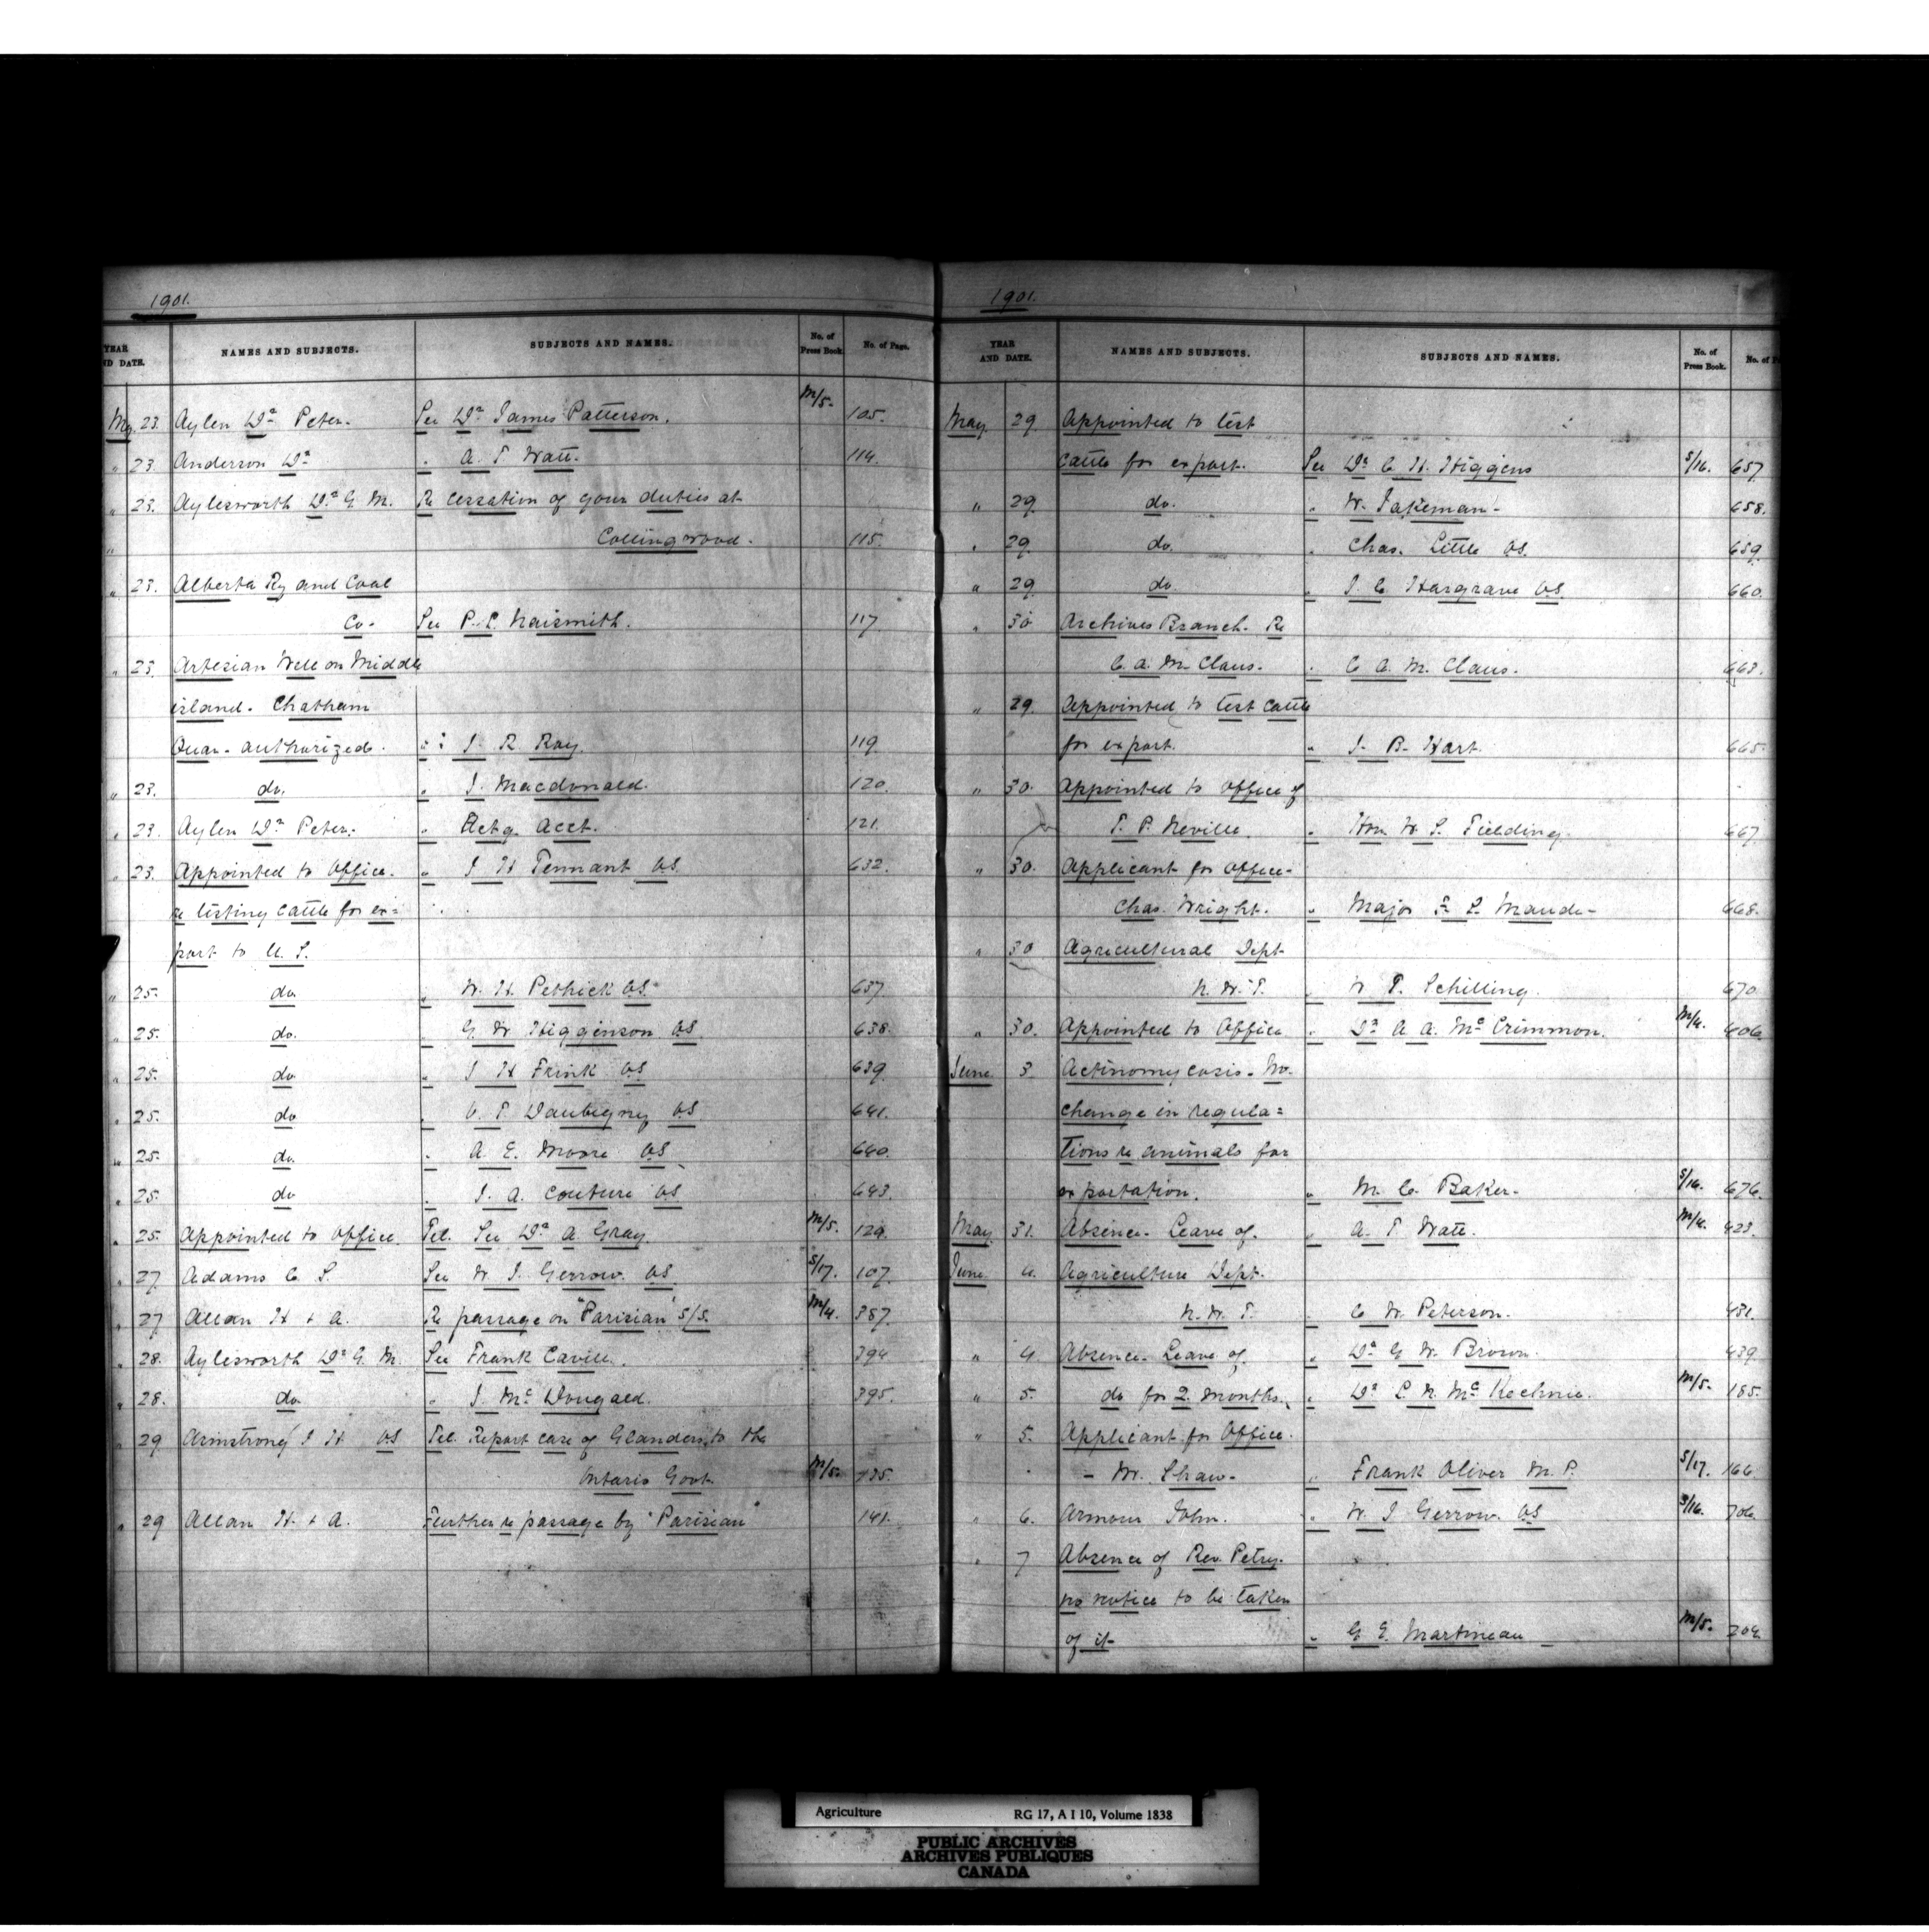 1901.
YEAR AND DATE. NAMES AND SUBJECTS. SUBJECTS AND NAMES. No. of Press Book. No. of Page.
May 23. Aylen Dr Peter. See Dr James Patterson. M/5. 105.
" 23. Anderson Dr " A. T. Watt. 114.
" 23. Aylesworth Dr G. M. Re cessation of your duties at
" Collingwood. 115.
" 23. Alberta Ry and Coal
Co. See P. L. Naismith. 117.
" 23 Artesian Well on Middle
island. Chatham
Quan. authorized. " J. R. Ray. 119
" 23. do. " J. Macdonald. 120.
" 23. Aylen Dr Peter. " Actg. Acct. 121.
" 23. Appointed to Office. " J H Tennant VS 632.
re testing cattle for ex=
port to U. S.
" 25. do. " W. H. Pethick VS. 637.
" 25. do. " G. W Higginson VS 638.
" 25. do " J H Frink VS 639.
" 25. do " V. T. Daubigny VS 641.
" 25. do. " A. E. Moore VS 640.
" 25. do " J. A. Couture VS 643.
" 25. Appointed to Office. Tel. See Dr A Gray. M/5. 129.
" 27. Adams C. S. See W. J. Gerrow. VS. S/17. 107.
" 27 Allan H & A. Re passage on "Parisian" S/S. M/4. 387.
" 28. Aylesworth Dr G. M. See Frank Cavill. 394
" 28. do. " J. Mc Dougald. 395.
" 29 Armstrong J H VS Tel. Report case of Glanders to the
Ontario Govt. M/5. 135.
" 29 Allan H. & A. Further re passage by "Parisian" 141.
1901.
YEAR AND DATE. NAMES AND SUBJECTS. SUBJECTS AND NAMES. No. of Press Book. No. of P
May 29 Appointed to test
cattle for export. See Dr C. H. Higgins S/16. 657
" 29 do. " W. Jakeman 658.
" 29 do. " Chas. Little VS. 659.
" 29 do. " J. C. Hargrave VS. 660.
" 30 Archives Branch. Re
C. A. M. Claus. " C. A. M. Claus. 663.
" 29. Appointed to test cattle
for export. " J. B. Hart. 665.
" 30. Appointed to office of
T. P. Neville. " Hon W. S. Fielding. 667
" 30. Applicant for Office-
Chas. Wright. " Major Maude 668.
" 30 Agricultural Dept
N. W. T. " W T. Schilling. 670.
" 30. Appointed to Office " Dr A. A. Mc Crimmon. M/4. 406
June 3 Actinomycosis. No.
change in regula=
tions re animals for
exportation. " M. C. Baker. S/16. 676.
May 31. Absence. Leave of. " A. T Watt. M/4. 423.
June 4. Agriculture Dept.
N. W. T. " C. W. Peterson. 431.
" 4 Absence. Leave of. " Dr G. W. Brown. 439.
" 5. do for 2 months. " Dr L. N. Mc Kechnie. M/5. 185.
" 5. Applicant for Office.
- W. Shaw. " Frank Oliver M. P. S/17. 166.
" 6. Armour John. " W. J Gerrow. VS S/16. 706.
" 7 Absence of Rev. Petry.
no notice to be taken
of it " G. E. Martineau M/5. 204.
Agriculture RG 17, A I 10, Volume 1838
PUBLIC ARCHIVES
ARCHIVES PUBLIQUES
CANADA